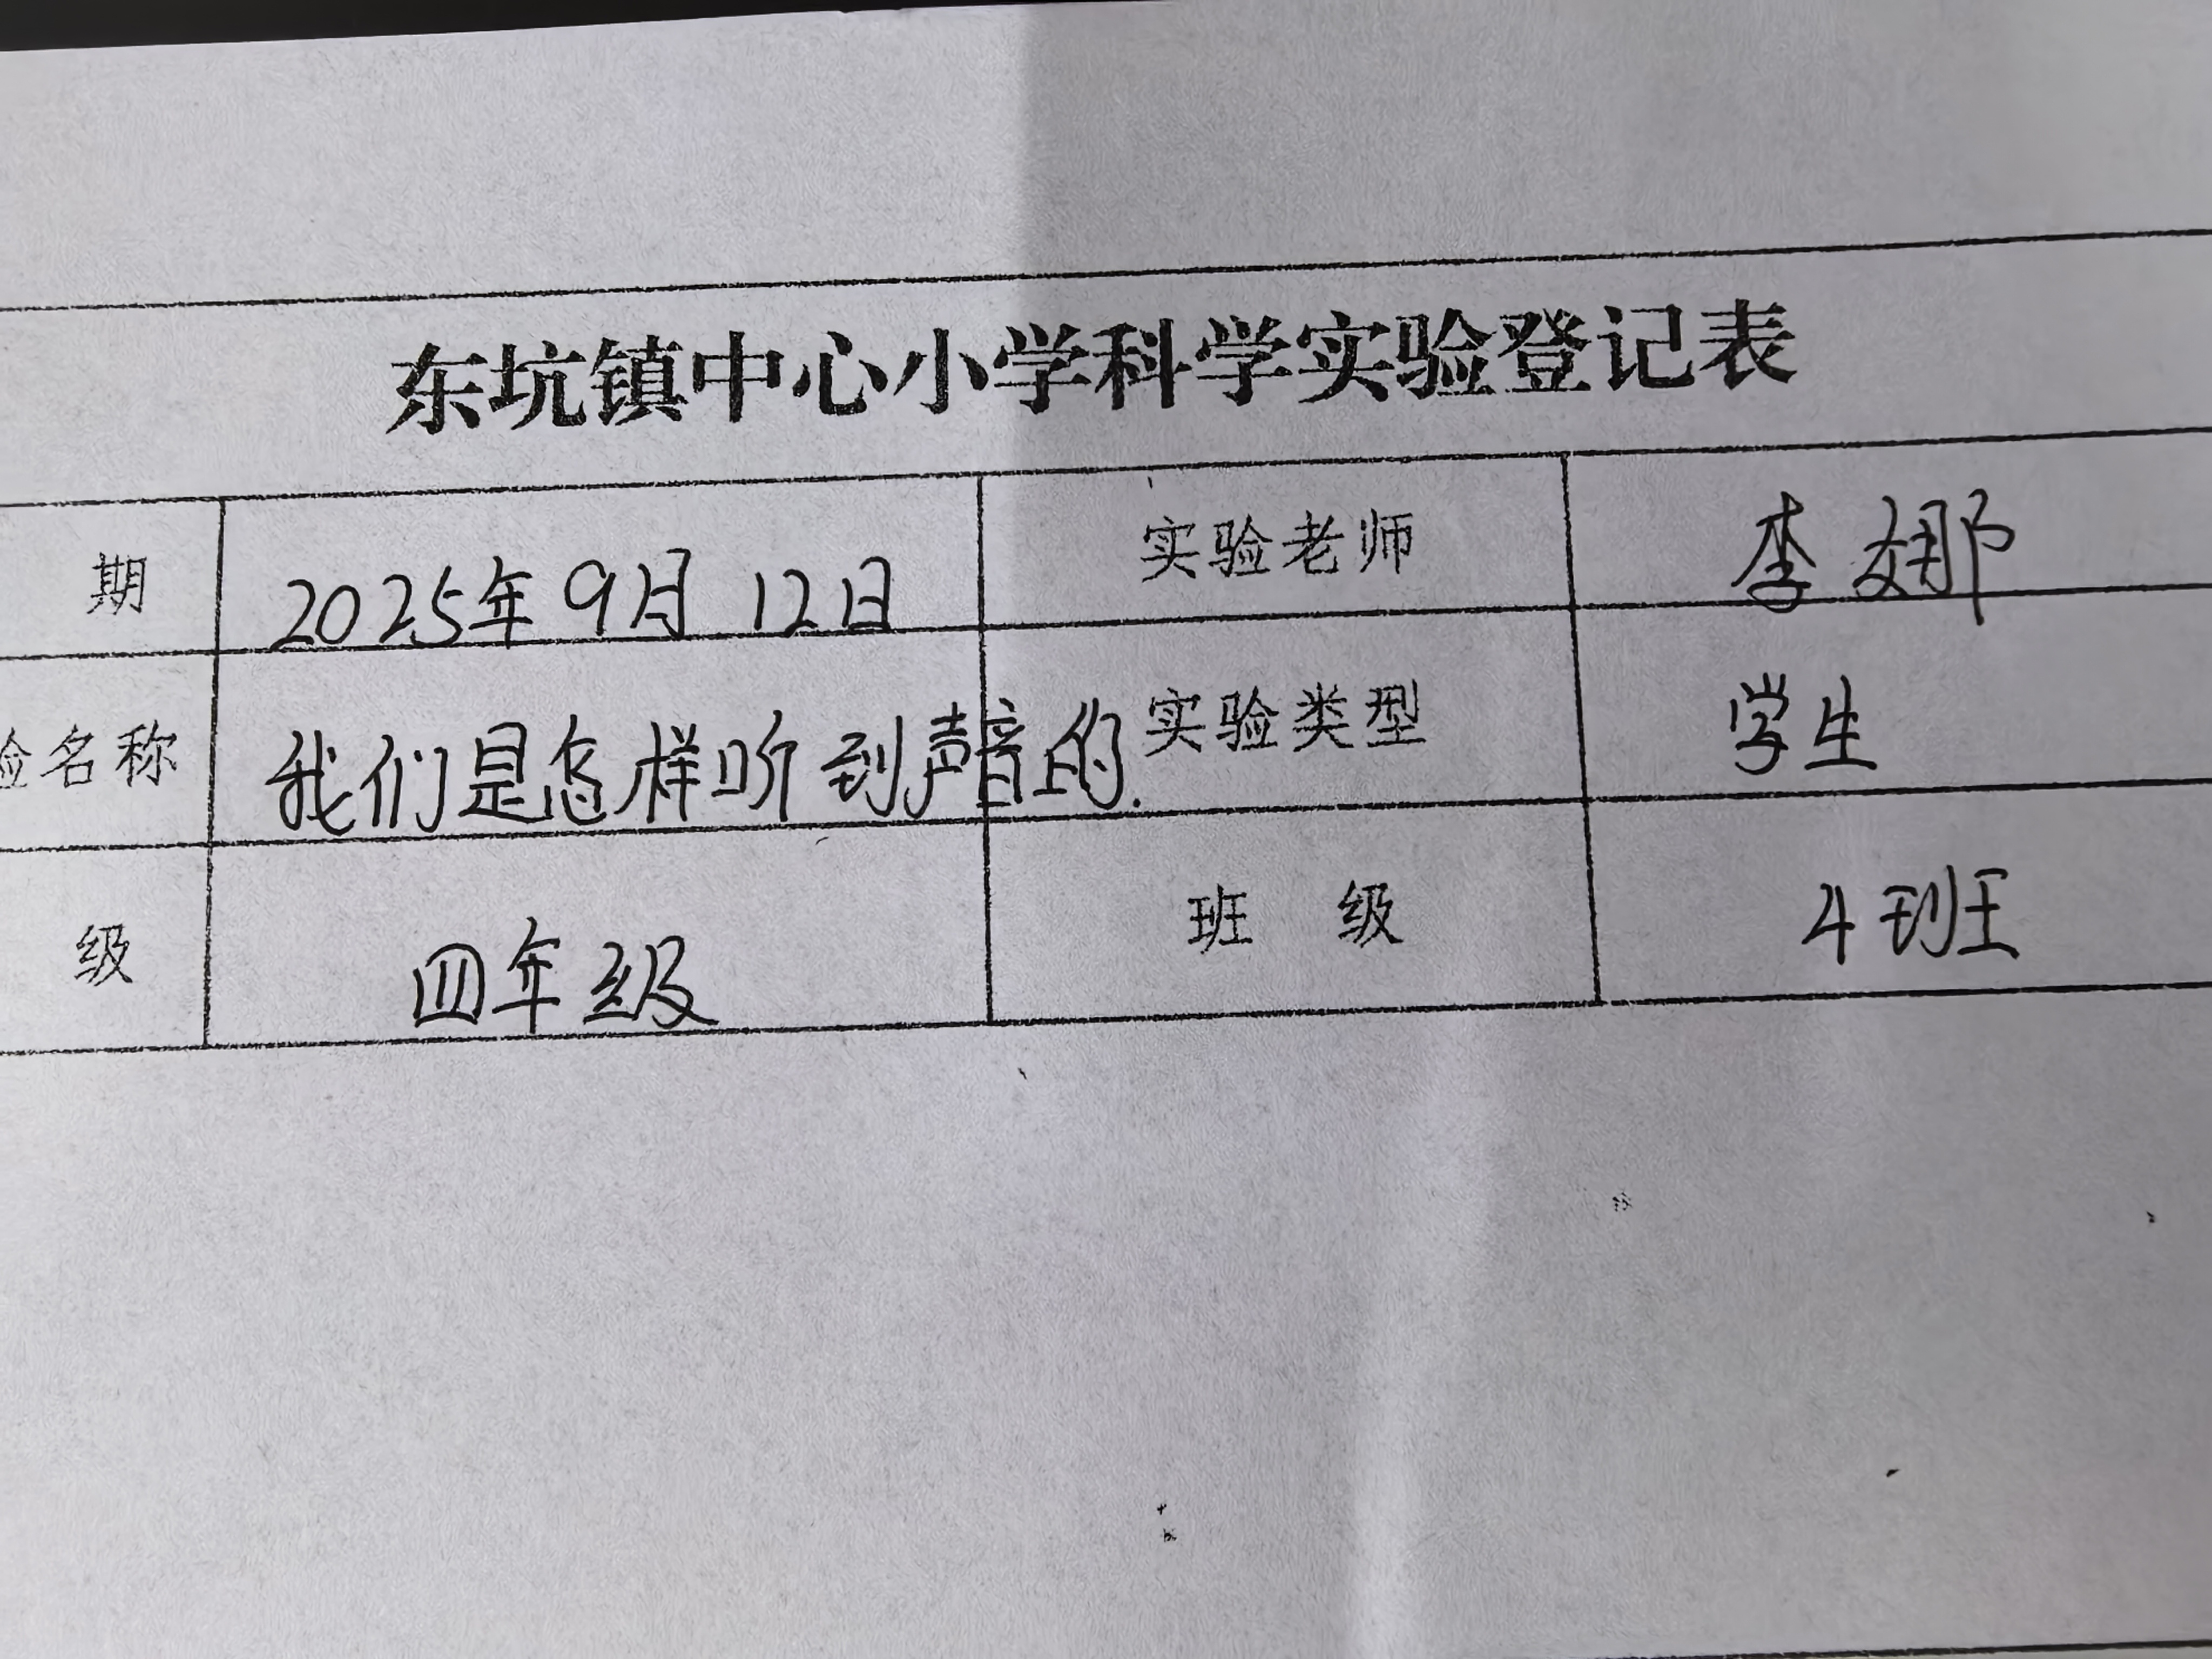 东坑镇中心小学科学实验登记表
期 2025年9月12日 实验老师 李娜
验名称 我们是怎样听到声音的. 实验类型 学生
级 四年级 班 级 4班